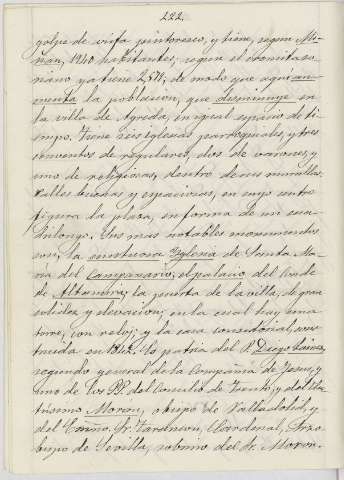 222.
golpe de vista pintoresco, y tiene, segun Mi-
ñan, 1940 habitantes; segun el
ya tiene 2,576; de modo que aqui au-
menta la poblacion, que disminuye en
la villa de Agreda, en igual espacio de ti-
empo. Tiene seis iglesias parroquiales, y tres
conventos de regulares, dos de varones, y
uno de religiosas, dentro de sus murallas.
Calles buenas y espaciosas, en cuyo centro
figura la plaza, en forma de un cua-
drilongo. Sus mas notables monumentos
son, la suntuosa Iglesia de Santa Ma-
ria del Campanario, el palacio del Conde
de Altamira; la puerta de la villa, de gran
solidez y elevacion, en la cual hay una
torre, con reloj; y la casa consistorial, cons-
truida en Es patria del P. Diego Lainez,
segundo general de la Compañia de Jesus, y
uno de los PP. del Concilio de Trento, y del Ilus-
trisimo Moron, obispo de Valladolid, y
del Emmo. Sr. Cardenal, Arzo-
bispo de Sevilla, sobrino del Sr. Moron.